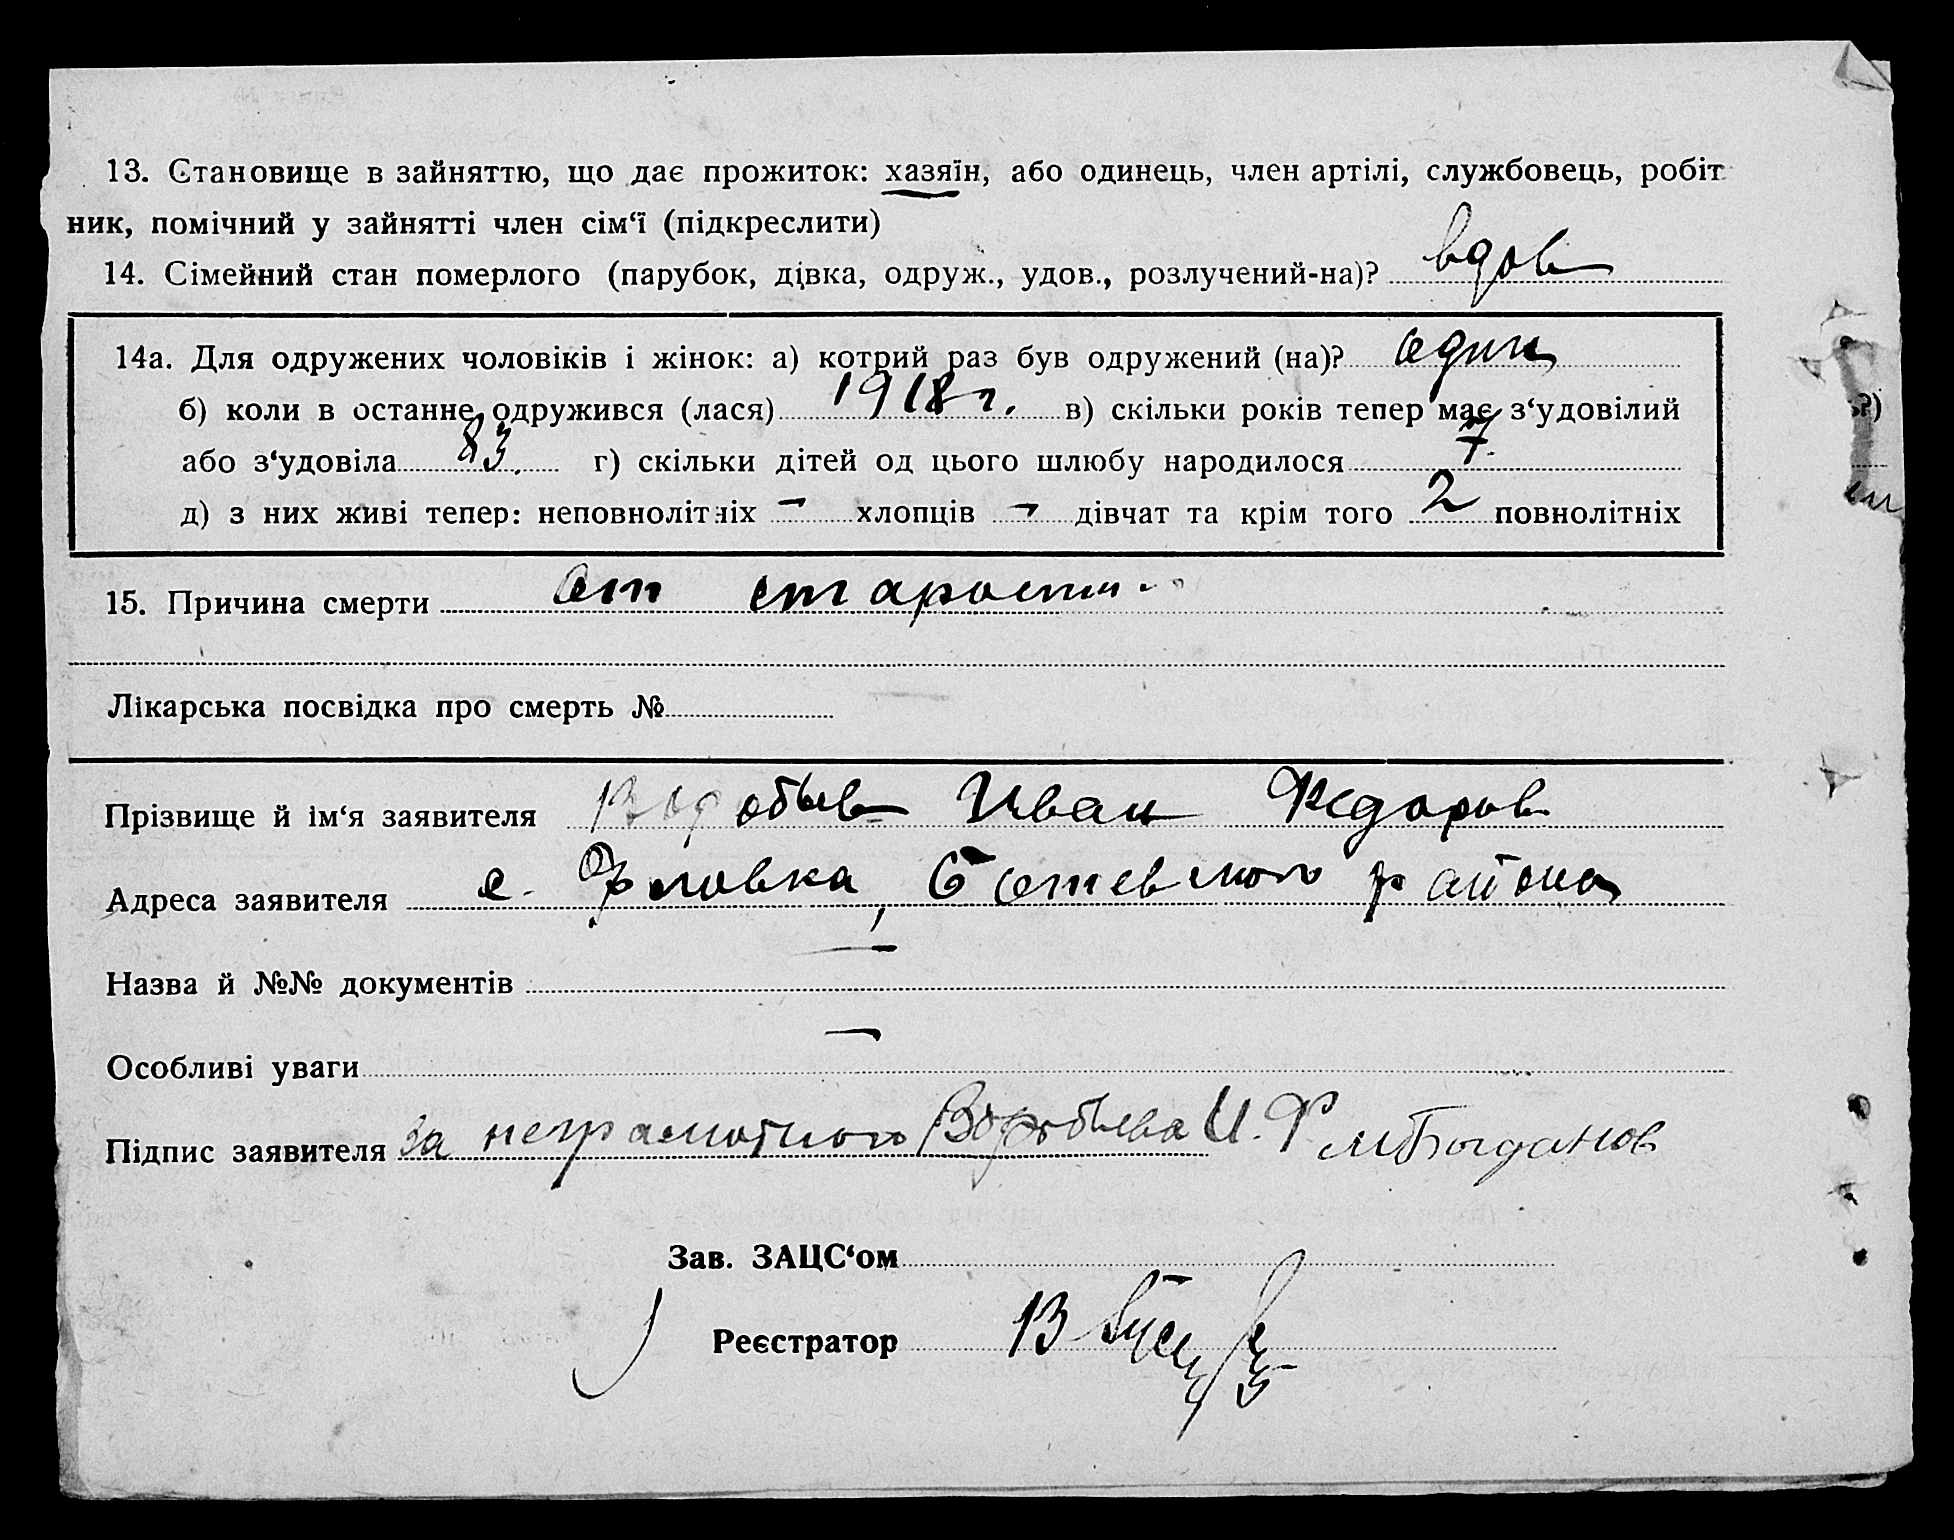 13. Становище в зайняттю, що дає прожиток: хазяїн, або одинець, член артілі, службовець, робіт
ник, помічний у зайнятті член сім‘ї (підкреслити)
14. Сімейний стан померлого (парубок, дівка, одруж., удов., розлучений-на)? вдов
14а. Для одружених чоловіків і жінок: а) котрий раз був одружений (на)? один
б) коли в останнє одружився (лася) 1918 г. в) скільки років тепер має з‘удовілий
або з‘удовіла 83. г) скільки дітей од цього шлюбу народилося 7.
д) з них живі тепер: неповнолітніх — хлопців — дівчат та крім того 2 повнолітніх
15. Причина смерти От старости
Лікарська посвідка про смерть №
Прізвище й ім‘я заявителя Воробьев Иван Федоров
Адреса заявителя с. Орловка, района
Назва й №№ документів —
Особливі уваги —
Підпис заявителя За неграмотного Воробьева И. Ф
Зав. ЗАЦС‘ом
Реєстратор